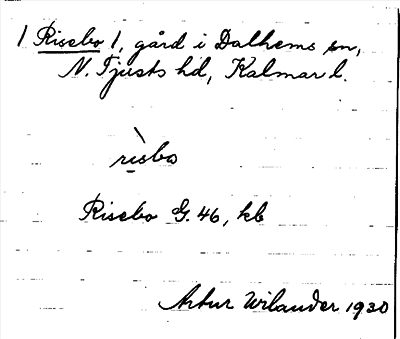 1 Risebo 1, gård i Dalhems sn,
N. Tjusts hd, Kalmar l.
rìsbo
Risebo G. 46, kb
Artur Wilander 1930